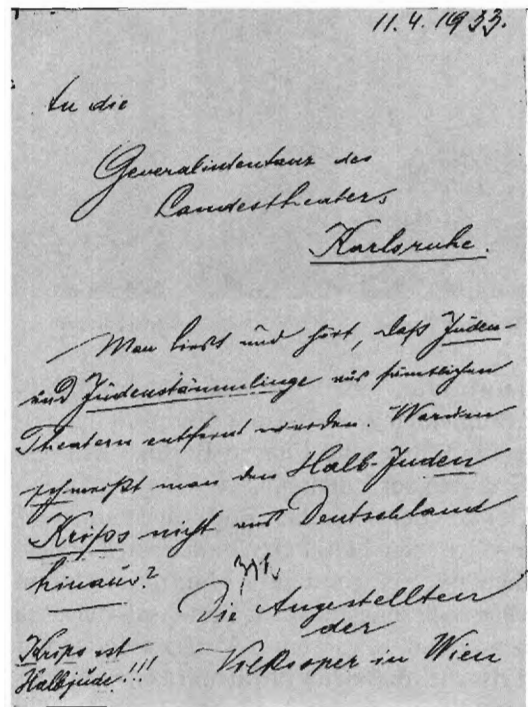 11.4.1933.
An die
Generalintendanz des
Landestheaters
Karlsruhe.
Man liest und hört, daß Juden-
und Judenstämmlinge aus sämtlichen
Theatern entfernt werden. Warum
schmeißt man den Halb-Juden
Krips nicht aus Deutschland
hinaus?
Die Angestellten
der
Volksoper in Wien
Krips ist
Halbjude!!!